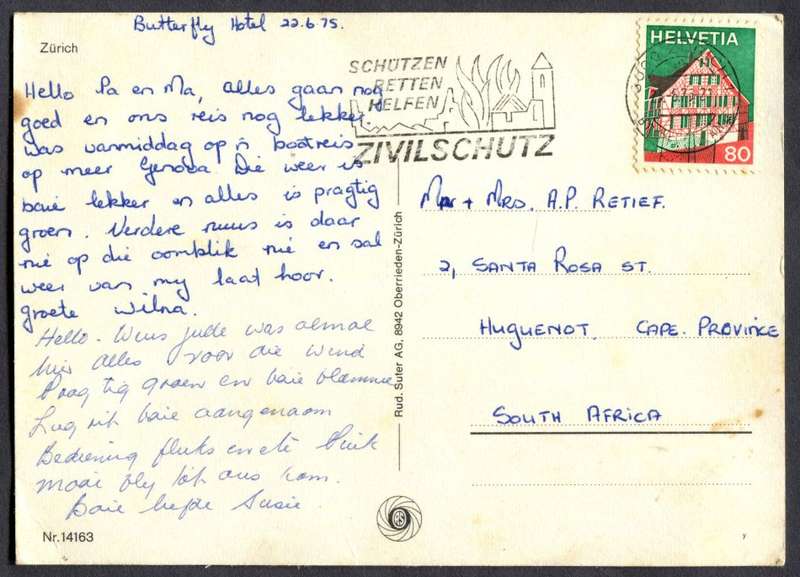 Butterfly Hotel 22.6.75.
Zürich
Hello Pa en Ma, alles gaan nog
goed en ons reis nog lekker.
was vanmiddag op 'n bootreis
op meer Geneva. Die weer is
baie lekker en alles is pragtig
groen. Verdere nuus is daar
nie op die oomblik nie en sal
weer van my laat hoor.
groete Wilna.
Hello. Wens julle was almal
hier Alles voor die wind
Pragtig groen en baie blomme
Lug rit baie aangenaam
Bediening fluks en ete
Mooi bly tot ons kom.
Baie liefde Susie
Nr. 14163
Rud. Suter AG, 8942 Oberrieden-Zürich
SCHÜTZEN
RETTEN
HELFEN
ZIVILSCHUTZ
HELVETIA
80
Mr + Mrs. A.P. Retief.
2, Santa Rosa St.
Huguenot. Cape. Province
South Africa